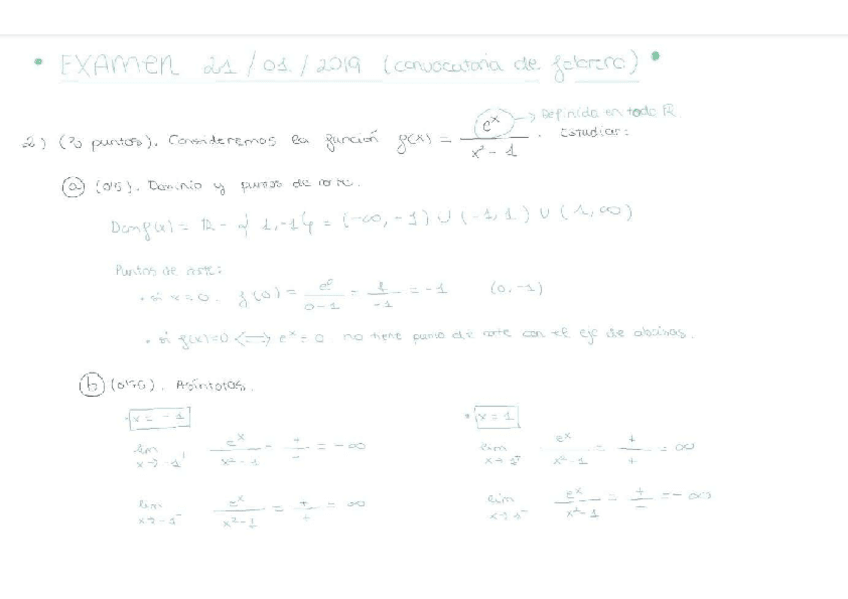 • EXAMEN 21/01/2019 (convocatoria de febrero) •
→ Definida en todo ℝ.
2) (2'0 puntos). Consideremos la función f(x) = e^x / (x² - 1). Estudiar:
(a) (0'5). Dominio y puntos de corte.
Dom f(x) = ℝ - {1, -1} = (-∞, -1) ∪ (-1, 1) ∪ (1, ∞)
Puntos de corte:
• si x = 0. f(0) = e^0 / (0 - 1) = 1 / -1 = -1 (0, -1)
• si f(x) = 0 <=> e^x = 0 no tiene punto de corte con el eje de abcisas.
(b) (0'75). Asíntotas.
• x = -1 • x = 1
lim x → -1 e^x / (x² - 1) = + / - = -∞ lim x → 1 e^x / (x² - 1) = + / + = ∞
lim x → -1⁻ e^x / (x² - 1) = + / + = ∞ lim x → 1⁻ e^x / (x² - 1) = + / - = -∞